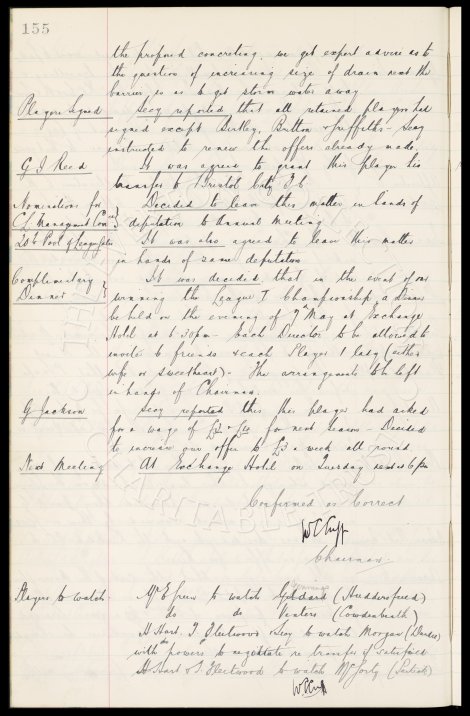 155
the proposed concreting. we get expert advice as to
the question of increasing size of drain next the
barrier so as to get storm water away
Players Signed
Secy reported that all retained players had
signed except Birtley, Britton & Griffiths - Secy
instructed to renew the offers already made.
G J Reed
It was agreed to grant this player his
transfer to Bristol City F.C.
Nominations for
C L Management Com
20% Pool of League Gates
Decided to leave this matter in hands of
deputation to Annual Meeting
It was also agreed to leave this matter
in hands of same deputation
Complimentary
Dinner
It was decided that in the event of our
winning the League I Championship a Dinner
be held on the evening of 7 May at Exchange
Hotel at 6 30pm - each Director to be allowed to
invite 2 friends & each Player 1 lady (either
wife or sweetheart) - The arrangements to be left
in hands of Chairman.
G Jackson
Secy reported this player had asked
for a wage of for next season - Decided
to increase our offer to £3 a week all round
Next Meeting
At Exchange Hotel on Tuesday next at 6 pm
Confirmed as Correct
W C Cuff
Chairman.
Players to watch
Mr E Green to watch Goddard (Huddersfield)
do do Venters (Cowdenbeath)
A Hart. T Fleetwood & Secy to watch Morgan (Dundee)
with powers to negotiate re transfer if satisfied
A Hart & T Fleetwood to watch
W C Cuff
THE
CHARITABLE TRUST